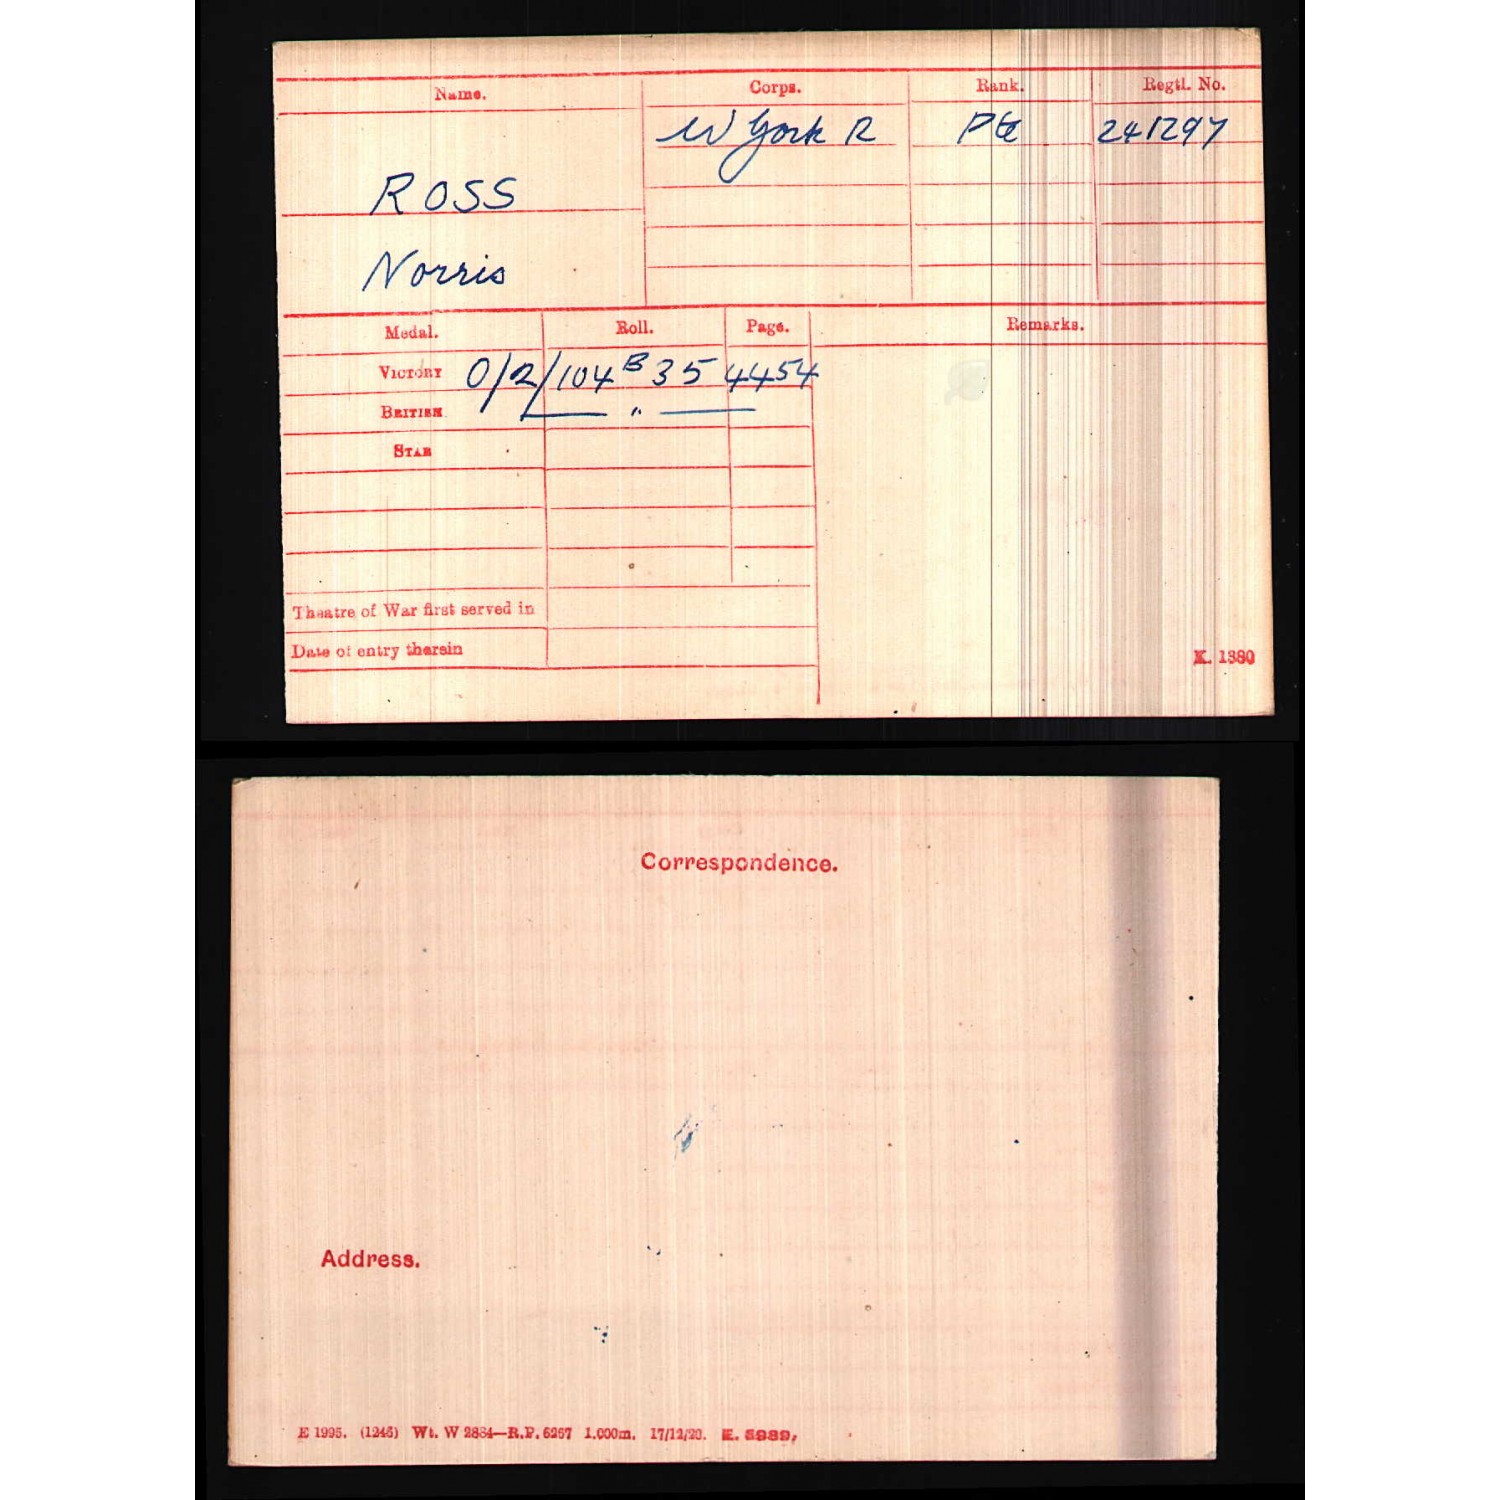 Name. Corps. Rank. Regtl. No.
W York R Pte 241297
ROSS
Norris
Medal. Roll. Page. Remarks.
VICTORY O/2/104 B 35 4454
BRITISH — " —
STAR
Theatre of War first served in
Date of entry therein
K. 1380
Correspondence.
Address.
E 1995. (1246) Wt. W 2884—R.P. 6267 1,000m. 17/12/20. E. 5989.